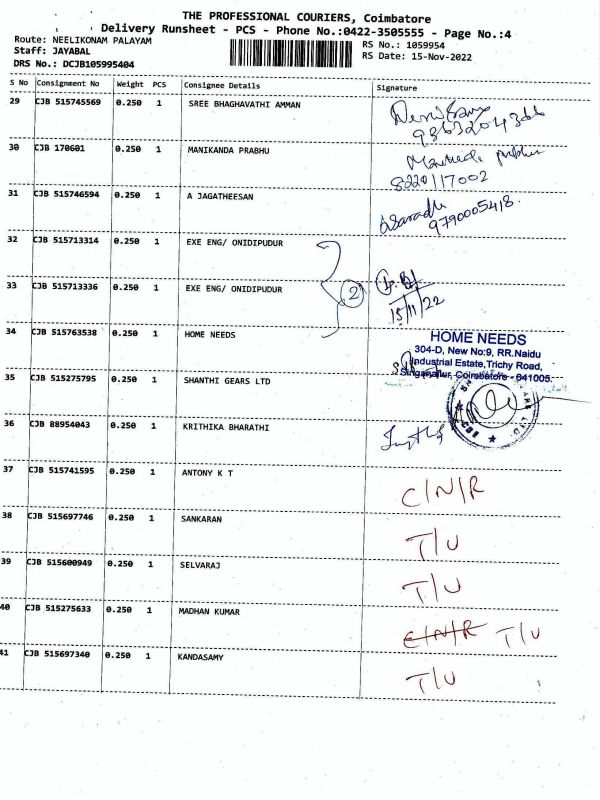 THE PROFESSIONAL COURIERS, Coimbatore
Delivery Runsheet - PCS - Phone No.:0422-3505555 - Page No.:4
Route: NEELIKONAM PALAYAM
RS No.: 1059954
Staff: JAYABAL
RS Date: 15-Nov-2022
DRS No.: DCJB105995404
S No Consignment No Weight PCS Consignee Details Signature
29 CJB 515745569 0.250 1 SREE BHAGHAVATHI AMMAN
30 CJB 170601 0.250 1 MANIKANDA PRABHU
8220117002
31 CJB 515746594 0.250 1 A JAGATHEESAN
9790005418.
32 CJB 515713314 0.250 1 EXE ENG/ ONIDIPUDUR
2
33 CJB 515713336 0.250 1 EXE ENG/ ONIDIPUDUR
15/11/22
34 CJB 515763538 0.250 1 HOME NEEDS
HOME NEEDS
304-D, New No:9, RR.Naidu
Industrial Estate,Trichy Road,
Singanallur, Coimbatore - 641005.
35 CJB 515275795 0.250 1 SHANTHI GEARS LTD
36 CJB 88954043 0.250 1 KRITHIKA BHARATHI
37 CJB 515741595 0.250 1 ANTONY K T
C/N/R
38 CJB 515697746 0.250 1 SANKARAN
T/U
39 CJB 515600949 0.250 1 SELVARAJ
T/U
40 CJB 515275633 0.250 1 MADHAN KUMAR
C/N/R T/U
41 CJB 515697340 0.250 1 KANDASAMY
T/U